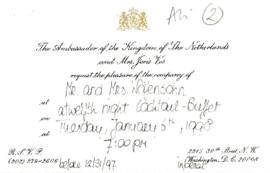 Ari (2)
The Ambassador of the Kingdom of The Netherlands
and Mrs. Joris Vos
request the pleasure of the company of
Mr and Mrs. Sorensohn
at a twelfth night Cocktail-Buffet
on Tuesday, January 6th, 1998
at 7:00 pm
R. S. V. P.
before 12/31/97
2315 30th Street, N. W.
Washington, D. C. 20008